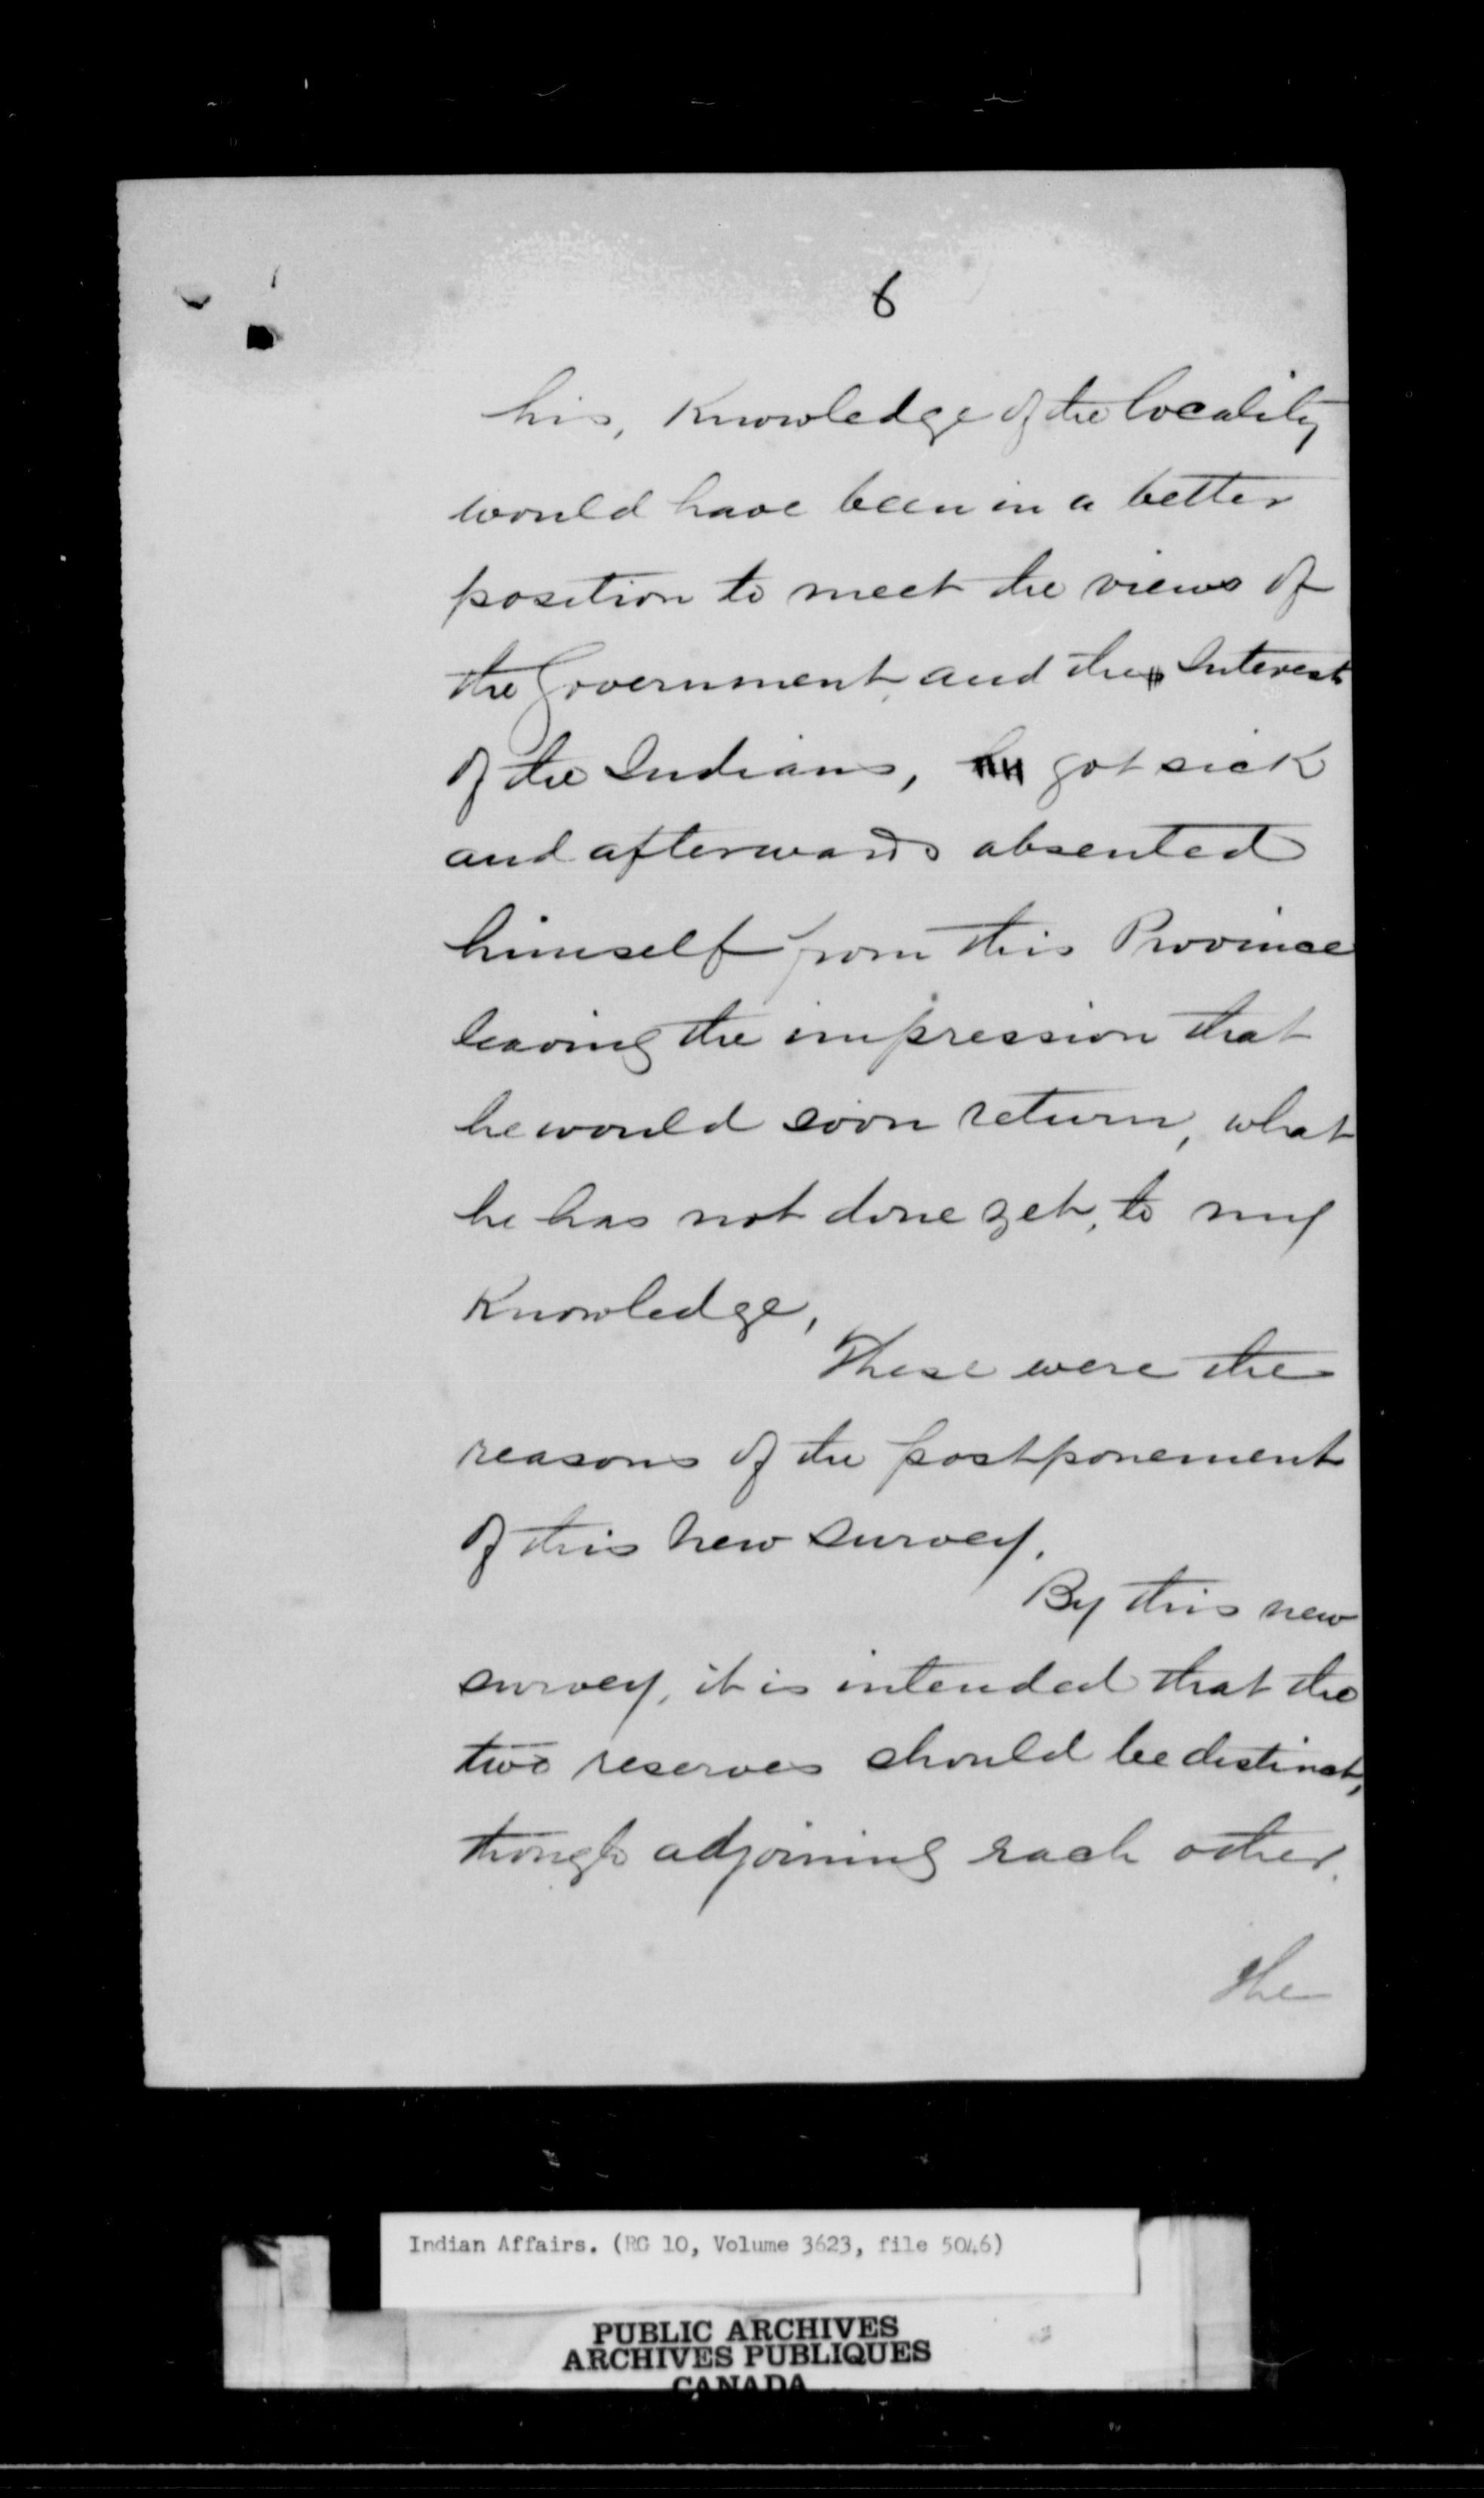 6
his, Knowledge of the locality
would have been in a better
position to meet the views of
the Government, and the Interest
of the Indians, got sick
and afterwards absented
himself from this Province
leaving the impression that
he would soon return, what
he has not done yet, to my
Knowledge,
These were the
reasons of the postponement
of this new survey.
By this new
survey, it is intended that the
two reserves should be distinct,
though adjoining each other.
the
Indian Affairs. (RG 10, Volume 3623, file 5046)
PUBLIC ARCHIVES
ARCHIVES PUBLIQUES
CANADA